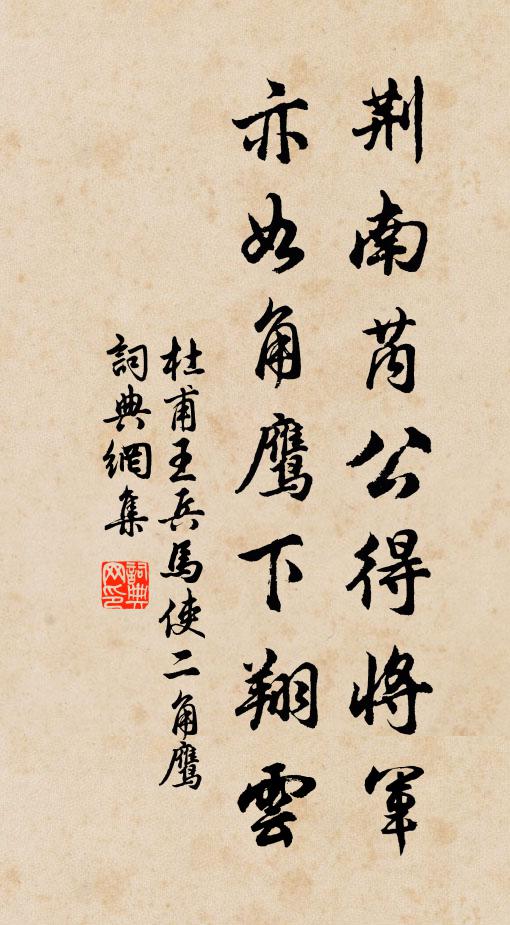 荆南芮公得将軍
亦如角鹰下翔雲
杜甫王兵馬使二角鹰
詞典網集
詞典网印